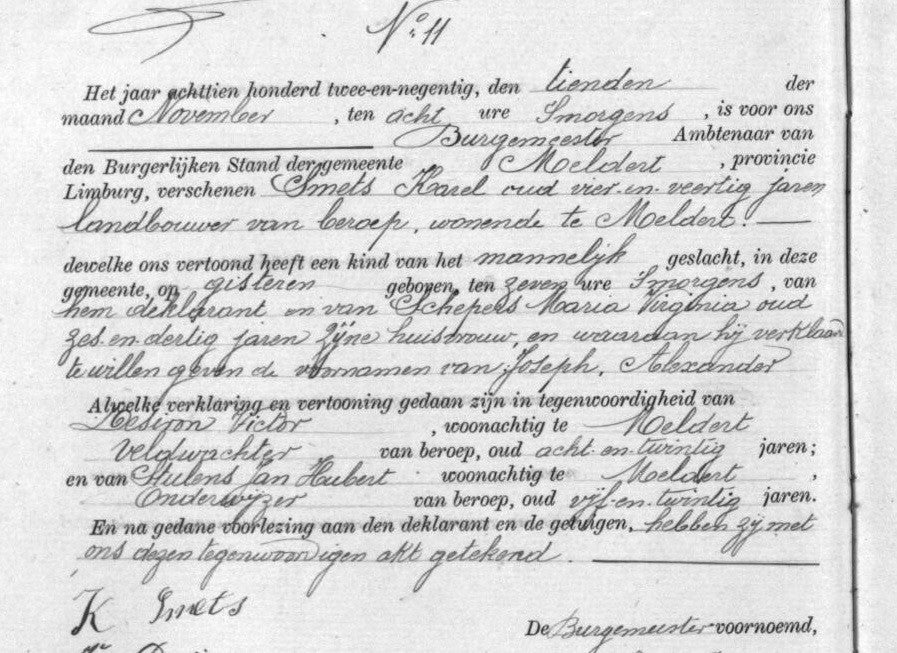 N° 11
Het jaar achttien honderd twee-en-negentig, den tienden der
maand November , ten acht ure Smorgens , is voor ons
Burgemeester Ambtenaar van
den Burgerlijken Stand der gemeente Meldert , provincie
Limburg, verschenen Smets Karel oud vier-en-veertig jaren
landbouwer van beroep, wonende te Meldert. —
dewelke ons vertoond heeft een kind van het mannelijk geslacht, in deze
gemeente, op gisteren geboren, ten zeven ure Smorgens , van
hem deklarant en van Schepers Maria Virginia oud
zes-en-dertig jaren zijne huisvrouw, en waaraan hij verklaar
te willen geven de voornamen van Joseph, Alexander
Alwelke verklaring en vertooning gedaan zijn in tegenwoordigheid van
Victor , woonachtig te Meldert
Veldwachter van beroep, oud acht-en-twintig jaren;
en van Hulens Jan Hubert woonachtig te Meldert ,
Onderwijzer van beroep, oud vijf-en-twintig jaren.
En na gedane voorlezing aan den deklarant en de getuigen, hebben zij met
ons dezen tegenwoordigen akt getekend.
K Smets
De Burgemeester voornoemd,